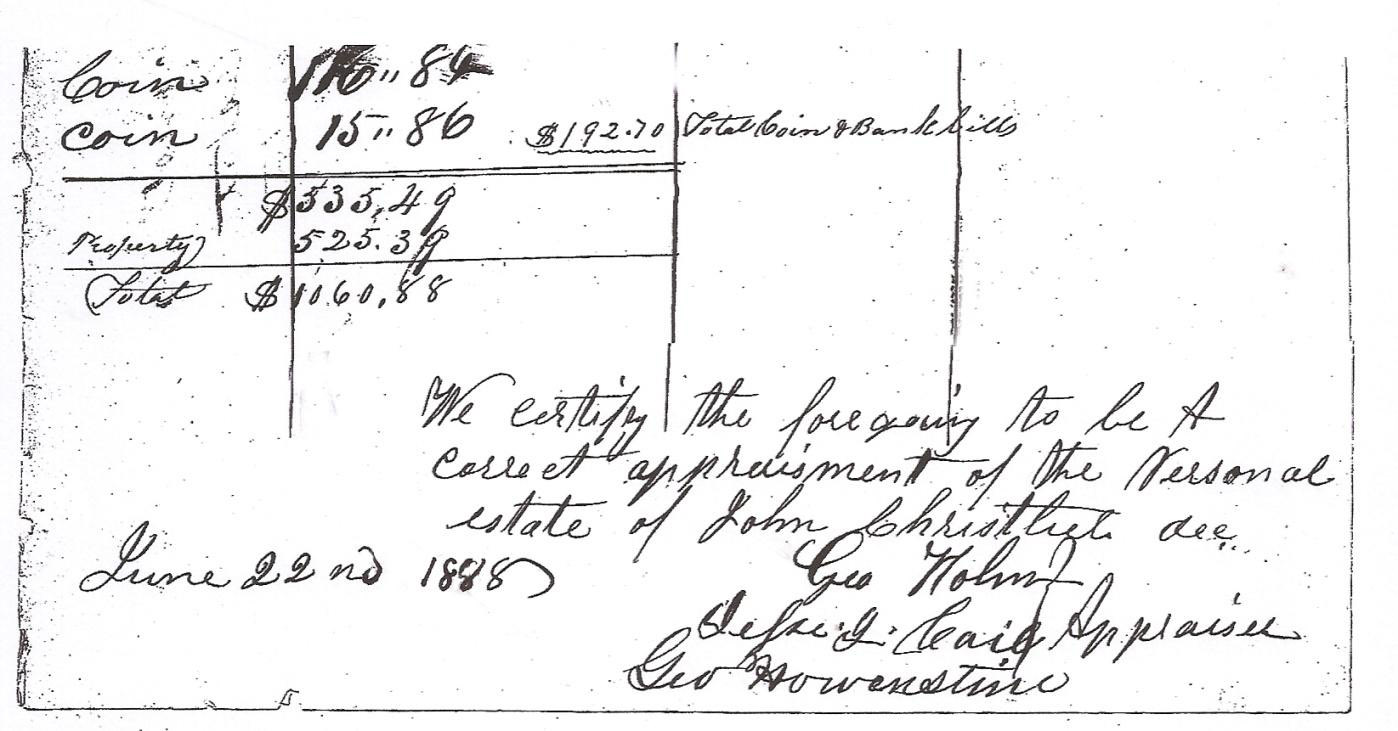 Coin 176.. 84
Coin 15.. 86 $192.70 Total Coin & Bank bills
$535.49
Property 525.39
Total $1060.88
We certify the foregoing to be A
correct appraisment of the Personal
estate of John Christlieb dec
June 22nd 1888
Geo Holm
Jesse Craig Appraiser
Geo Howenstine